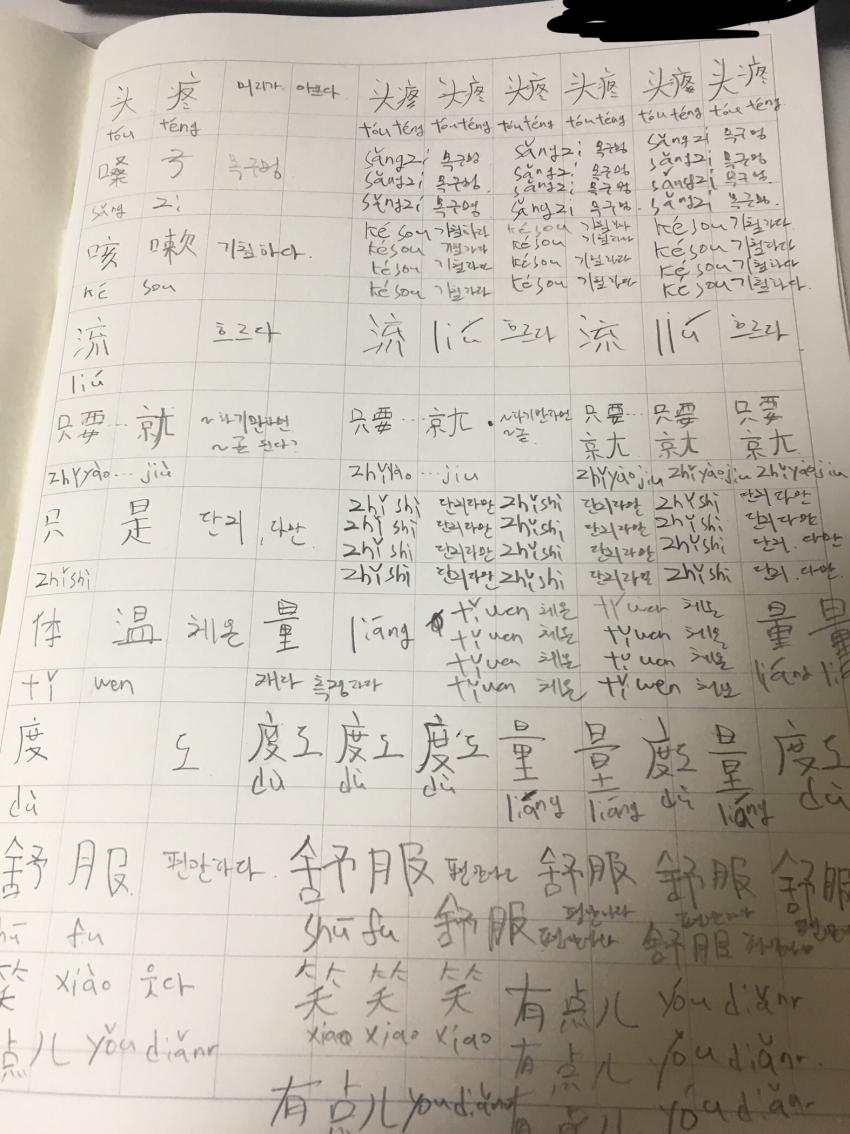 头 疼 머리가 아프다 头疼 头疼 头疼 头疼 头疼 头疼
tóu téng tóu téng tóu téng tóu téng tóu téng tóu téng tóu téng
嗓 子 목구멍 sǎngzi 목구멍 sǎngzi 목구멍 sǎngzi 목구멍
sǎngzi 목구멍 sǎngzi 목구멍 sǎngzi 목구멍
sǎngzi 목구멍
sǎng zi sǎngzi 목구멍 sǎngzi 목구멍 sǎngzi 목구멍
咳 嗽 기침하다. késou késou késou 기침하다.
késou késou késou
késou késou késou 기침하다
ké sou késou késou késou
流 흐르다 流 liú 흐르다 流 liú 흐르다
liú
只要…就 ~하기만하면 只要…就 ~하기만하면 只要… 只要 只要
~곧 된다? ~곧 就 就 就
zhǐyào…jiù zhǐyào…jiu zhǐyàojiu zhǐyàojiu zhǐyàojiu
只 是 단지 , 다만 zhǐshì 단지다만 zhǐshì 단지다만 zhǐshì 단지 다만
zhǐshì 단지다만 zhǐshì 단지다만 zhǐshì 단지 다만
zhǐshì 단지다만 zhǐshì 단지다만 zhǐshì 단지. 다만
zhǐshì zhǐshì 단지다만 zhǐshì 단지다만 zhǐshì 단지. 다만
体 温 체온 量 liáng tǐwen 체온 tǐwen 체온 量 量
tǐwen 체온 tǐwen 체온
tǐwen 체온 tǐwen 체온 liáng
tǐ wen 재다 측정하다 tǐwen 체온 tǐwen 체온
度 도 度도 度도 度도 量 量 度도 量 度도
dù dù dù dù liáng liáng dù liáng dù
舒 服 편안하다. 舒服 舒服 舒服 舒服
fu shūfu 舒服 舒服
笑 xiào 웃다 笑 笑 笑 有点儿 yóudiǎnr
点儿 yǒudiǎnr xiao xiao xiao 有点儿 yǒudiǎnr.
有点儿 yǒudiǎnr 有点儿 yóudiǎnr